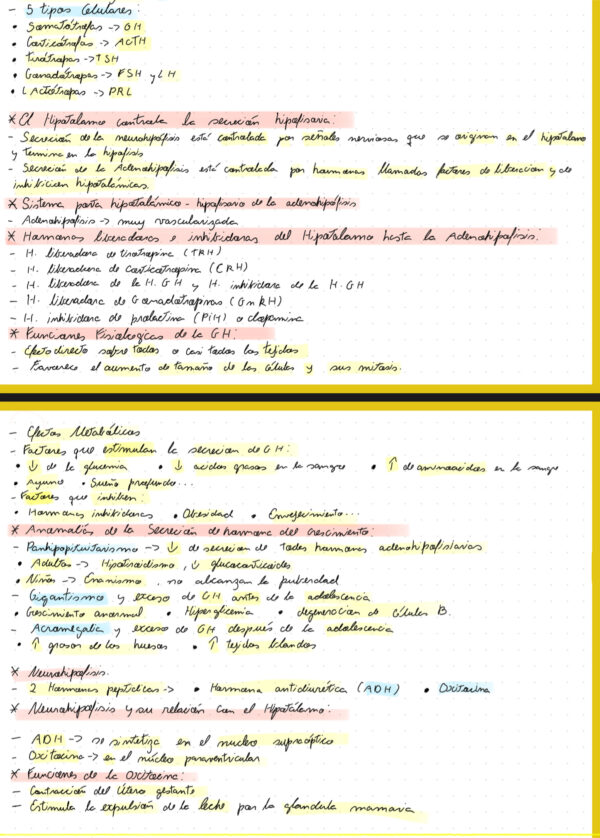 - 5 tipos Celulares:
• Somatótrofas -> GH
• Corticótrofas -> ACTH
• Tirótropas -> TSH
• Gonadótropas -> FSH y LH
• Lactótropas -> PRL
* El Hipotálamo controla la secreción hipofisaria:
- Secreción de la neurohipófisis está controlada por señales nerviosas que se originan en el hipotálamo
y termina en la hipófisis
- Secreción de la Adenohipófisis está controlada por hormonas llamadas factores de liberación y de
inhibición hipotalámicas.
* Sistema porta hipotalámico - hipofisario de la adenohipófisis
- Adenohipófisis -> muy vascularizada
* Hormonas liberadoras e inhibidoras del Hipotálamo hasta la Adenohipófisis:
- H. liberadora de tirotropina (TRH)
- H. liberadora de corticotropina (CRH)
- H. liberadora de la H. GH y H. inhibidora de la H. GH
- H. liberadora de Gonadotropinas (GnRH)
- H. inhibidora de prolactina (PiH) o dopamina
* Funciones Fisiológicas de la GH:
- Efecto directo sobre todos o casi todos los tejidos
- Favorece el aumento de tamaño de las células y sus mitosis.
- Efectos Metabólicos
- Factores que estimulan la secreción de GH:
• ↓ de la glucemia • ↓ acidos grasos en la sangre • ↑ de aminoácidos en la sangre
• Ayuno • Sueño profundo...
- Factores que inhiben:
• Hormonas inhibidoras • Obesidad • Envejecimiento...
* Anomalías de la Secreción de hormona del crecimiento:
- Panhipopituitarismo -> ↓ de secreción de todas hormonas adenohipofisiarias
• Adultos -> Hipotiroidismo, ↓ glucocorticoides
• Niños -> Enanismo, no alcanzan la pubertad
- Gigantismo y exceso de GH antes de la adolescencia
• Crecimiento anormal • Hiperglicemia • degeneración de células B.
- Acromegalia y exceso de GH después de la adolescencia
• ↑ grosor de los huesos • ↑ tejidos blandos
* Neurohipófisis.
- 2 Hormonas peptídicas -> • Hormona antidiurética (ADH) • Oxitocina
* Neurohipófisis y su relación con el Hipotálamo:
- ADH -> se sintetiza en el nucleo supraóptico
- Oxitocina -> en el núcleo paraventricular
* Funciones de la Oxitocina:
- Contracción del útero gestante
- Estimula la expulsión de la leche por la glándula mamaria